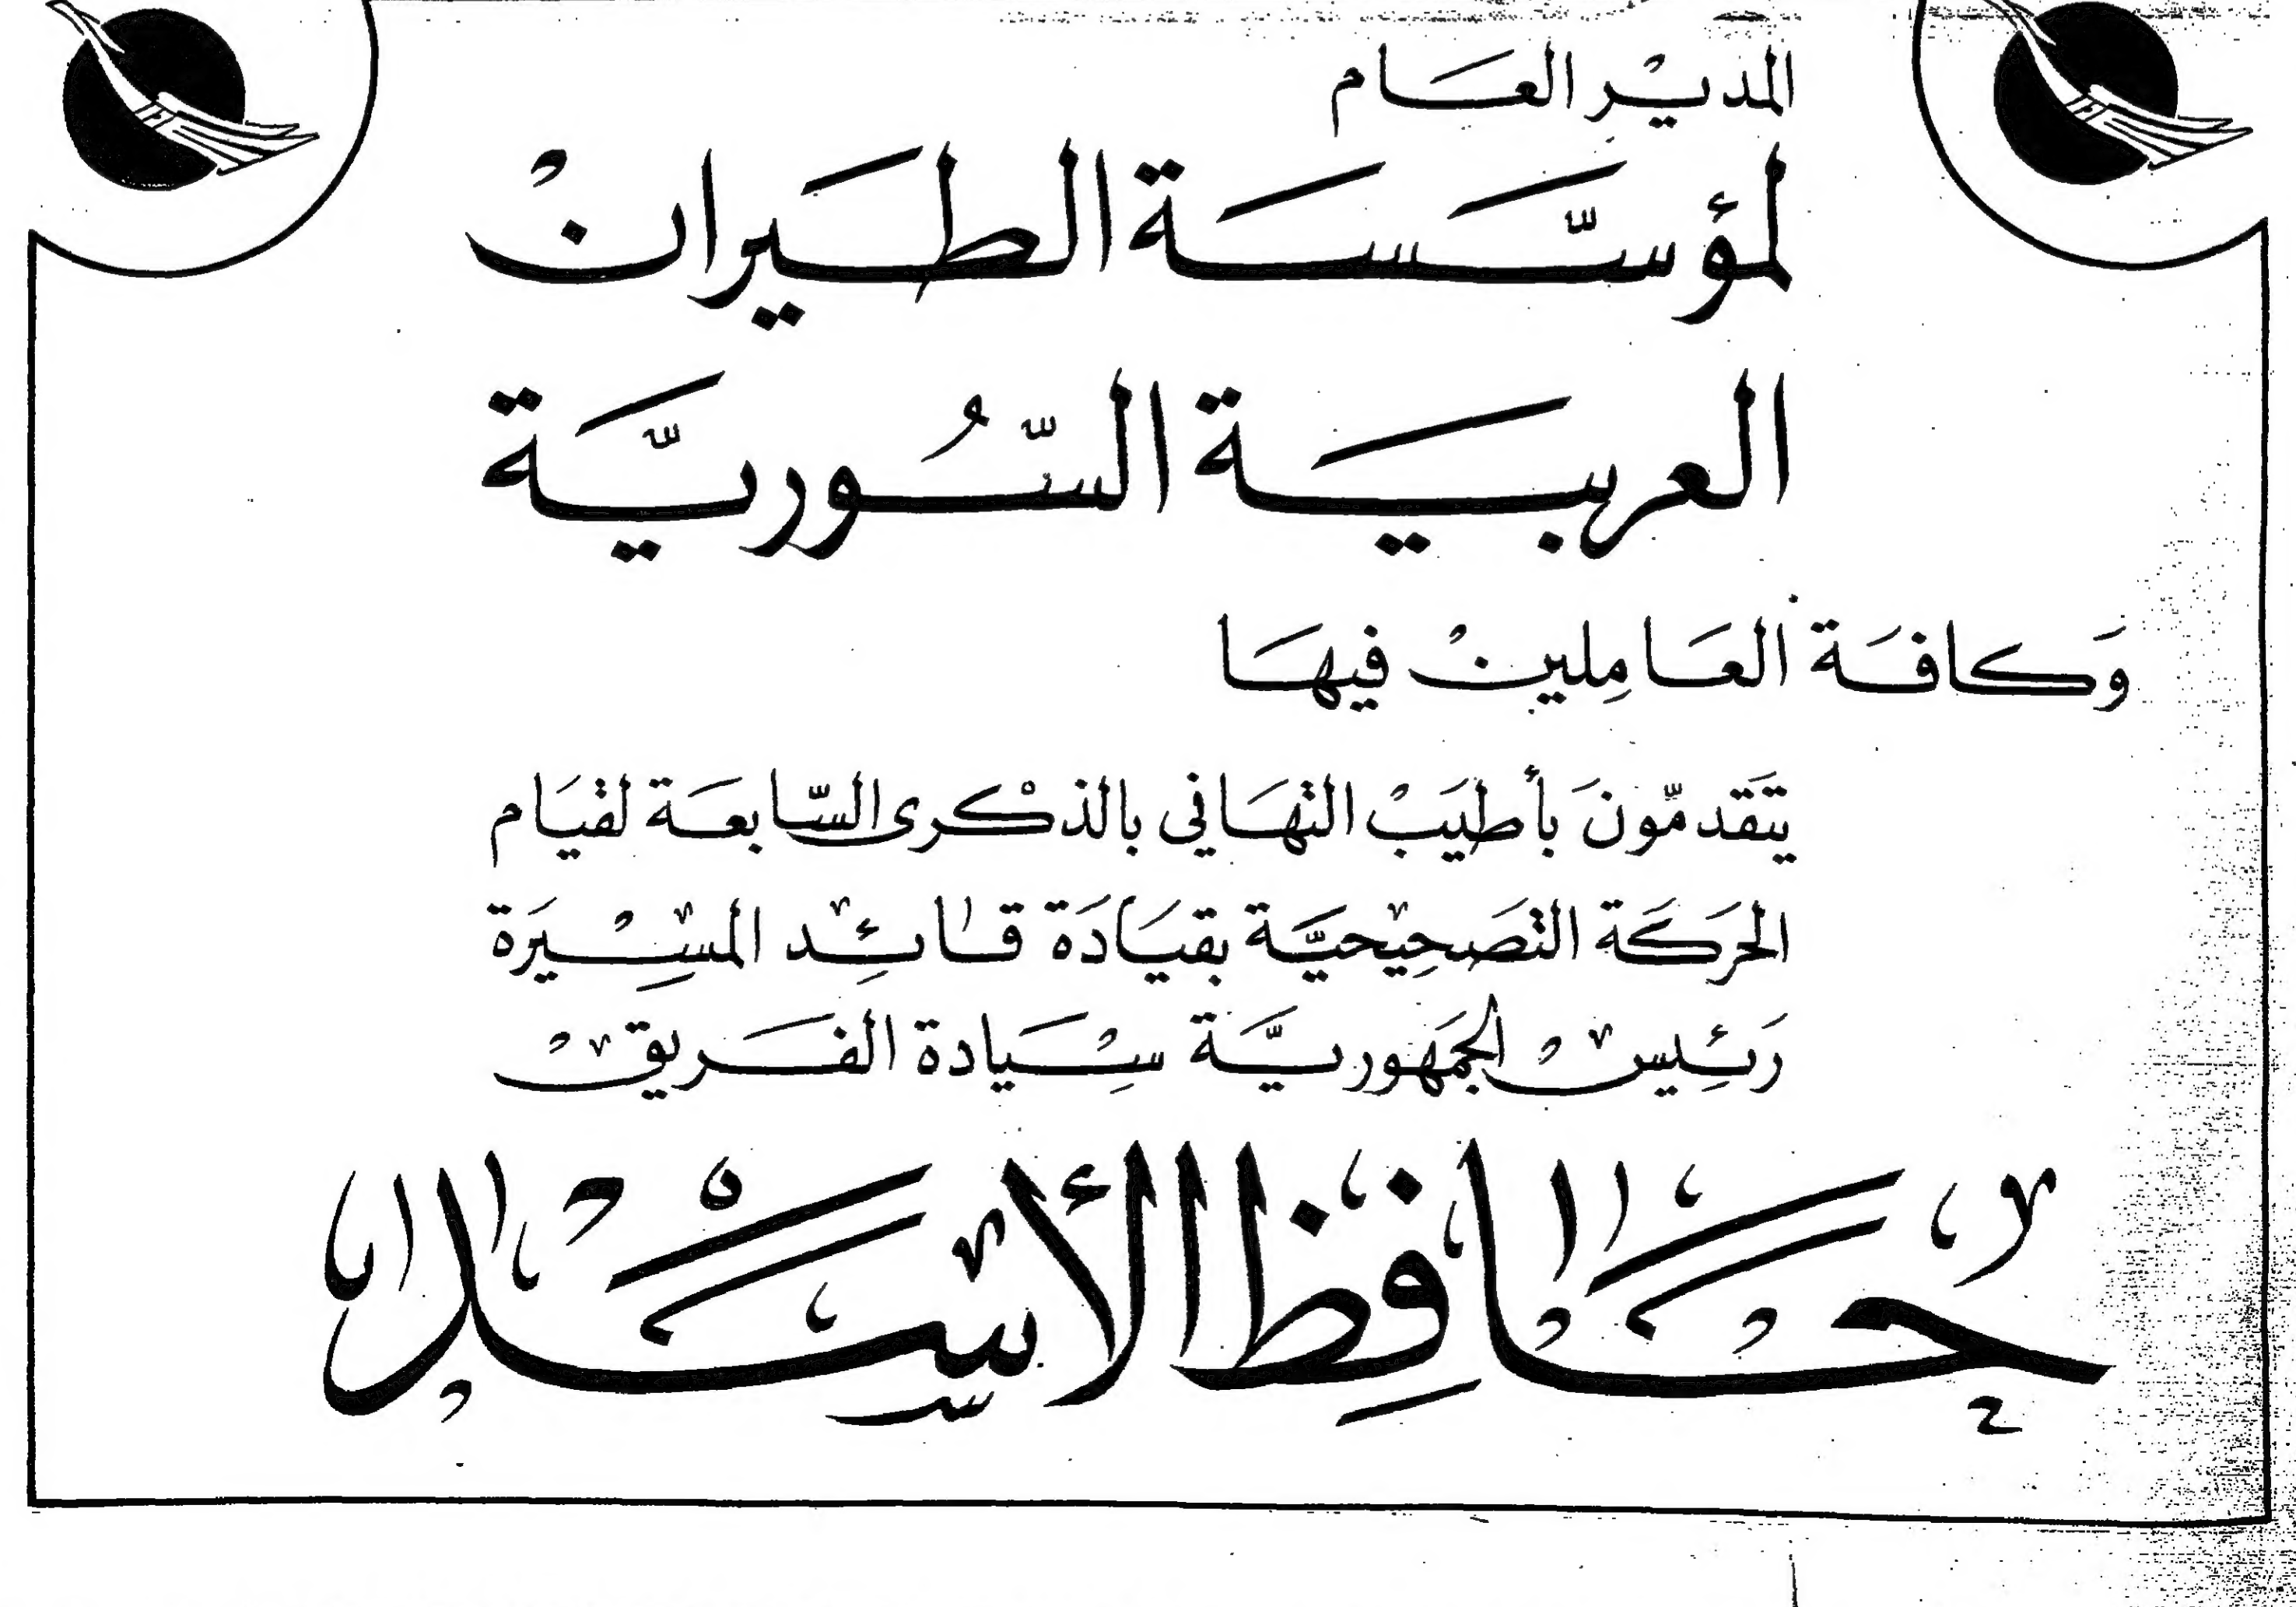 المديْر العَام
لمؤسَّسَة الطَيران
العربيَة السُّوريَّة
وَكافَة العَامِلين فيهَا
يتَقدمّونَ بأطيَبْ التهَاني بالذكْرى السَّابعَة لقيَام
الحَركَة التصَحِيحيَّة بقيَادَة قائِد المسِيْرَة
رَئِيس الجمَهوريَّة سِيادة الفَريق
حَافِظ الأسَد